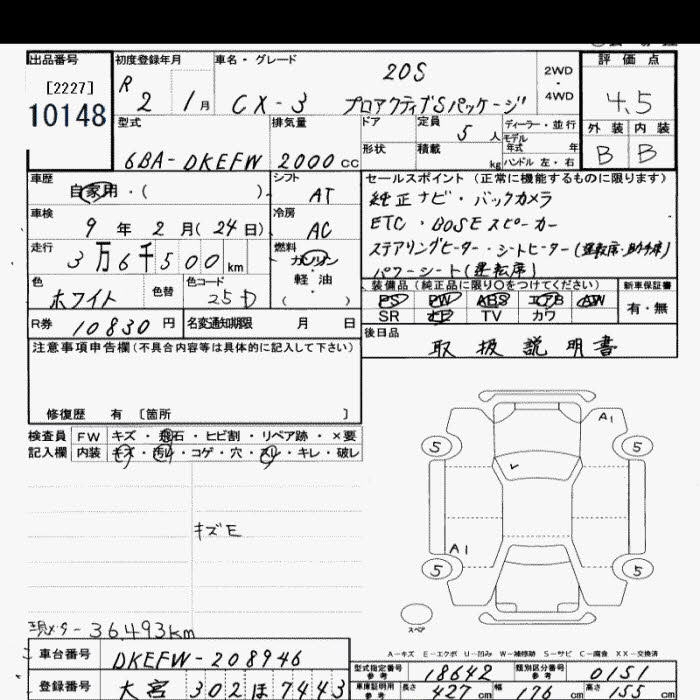 出品番号 初度登録年月 車名・グレード 評価点
[2227] R 20S 2WD
10148 2 1月 CX-3 プロアクティブSパッケージ ・4WD 4.5
型式 排気量 ドア 定員 5人 ディーラー・並行 外装 内装
6BA-DKEFW 2000cc 形状 積載 kg モデル年式 年 ハンドル 左・右 B B
車歴 自家用・( ) シフト AT セールスポイント (正常に機能するものに限ります)
純正ナビ・バックカメラ
車検 9年 2月(24日) 冷房 AC ETC・BOSEスピーカー
走行 3万6千500km 燃料 ガソリン・軽油 ( ) ステアリングヒーター・シートヒーター(運転席・助手席)
パワーシート(運転席)
色 ホワイト 色替 色コード 25D 装備品 (純正品に限り○をつけてください) 新車保証書
PS PW ABS エアB AW 有・無
SR TV カワ
R券 10830円 名変通知期限 月 日 後日品
取扱説明書
注意事項申告欄(不具合内容等は具体的に記入して下さい)
修復歴 有 〔箇所 〕
検査員 FW キズ・飛石・ヒビ割・リペア跡・×要
記入欄 内装 キズ・汚れ・コゲ・穴・スレ・キレ・破レ
A1
5 5
キズE
A1
5 5
スペア
現メーター 36,493km
A-キズ E-エクボ U-凹み W-補修跡 S-サビ C-腐食 XX-交換済
車台番号 DKEFW-208946
型式指定番号 参考 18642 類別区分番号 参考 0151
登録番号 大宮 302 ほ 7443 車庫証明用 参考 長さ 427cm 幅 176cm 高さ 155cm